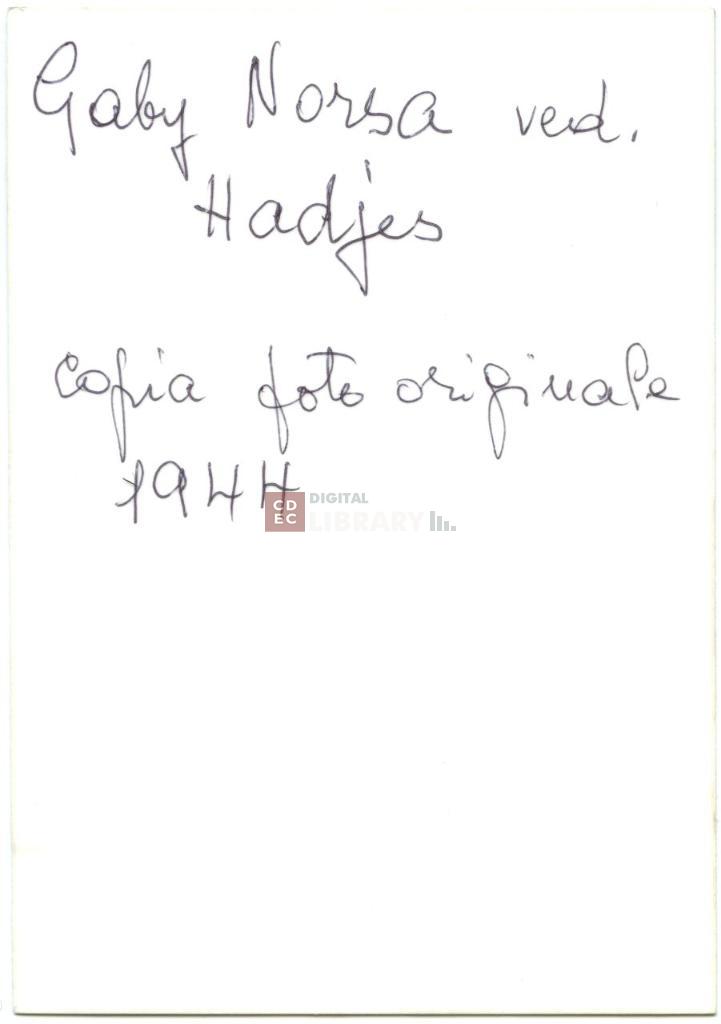 Gaby Norsa ved.
Hadjes
copia foto originale
1944
CD
EC
DIGITAL
LIBRARY